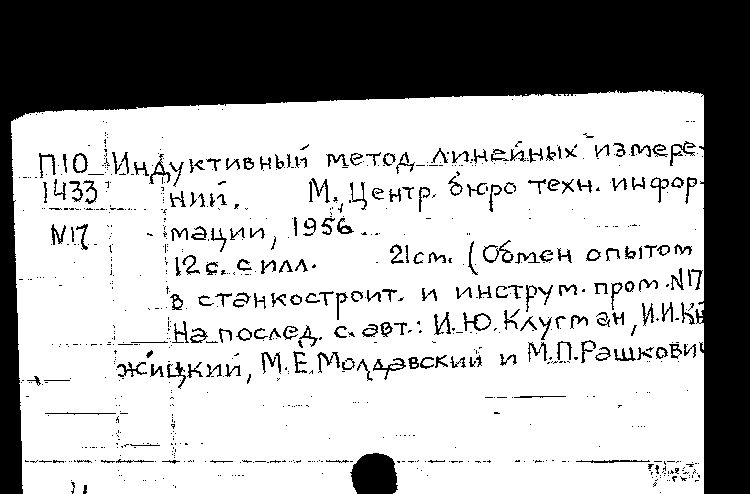 П10 Индуктивный метод линейных измере-
1433 ний. М., Центр. бюро техн. инфор-
N17 мации, 1956.
12 с. с илл. 21 см. (Обмен опытом
в станкостроит. и инструм. пром. N17
На послед. с. авт.: И.Ю. Клугман, И.И. Кн
жицкий, М.Е. Молдавский и М.П. Рашкович